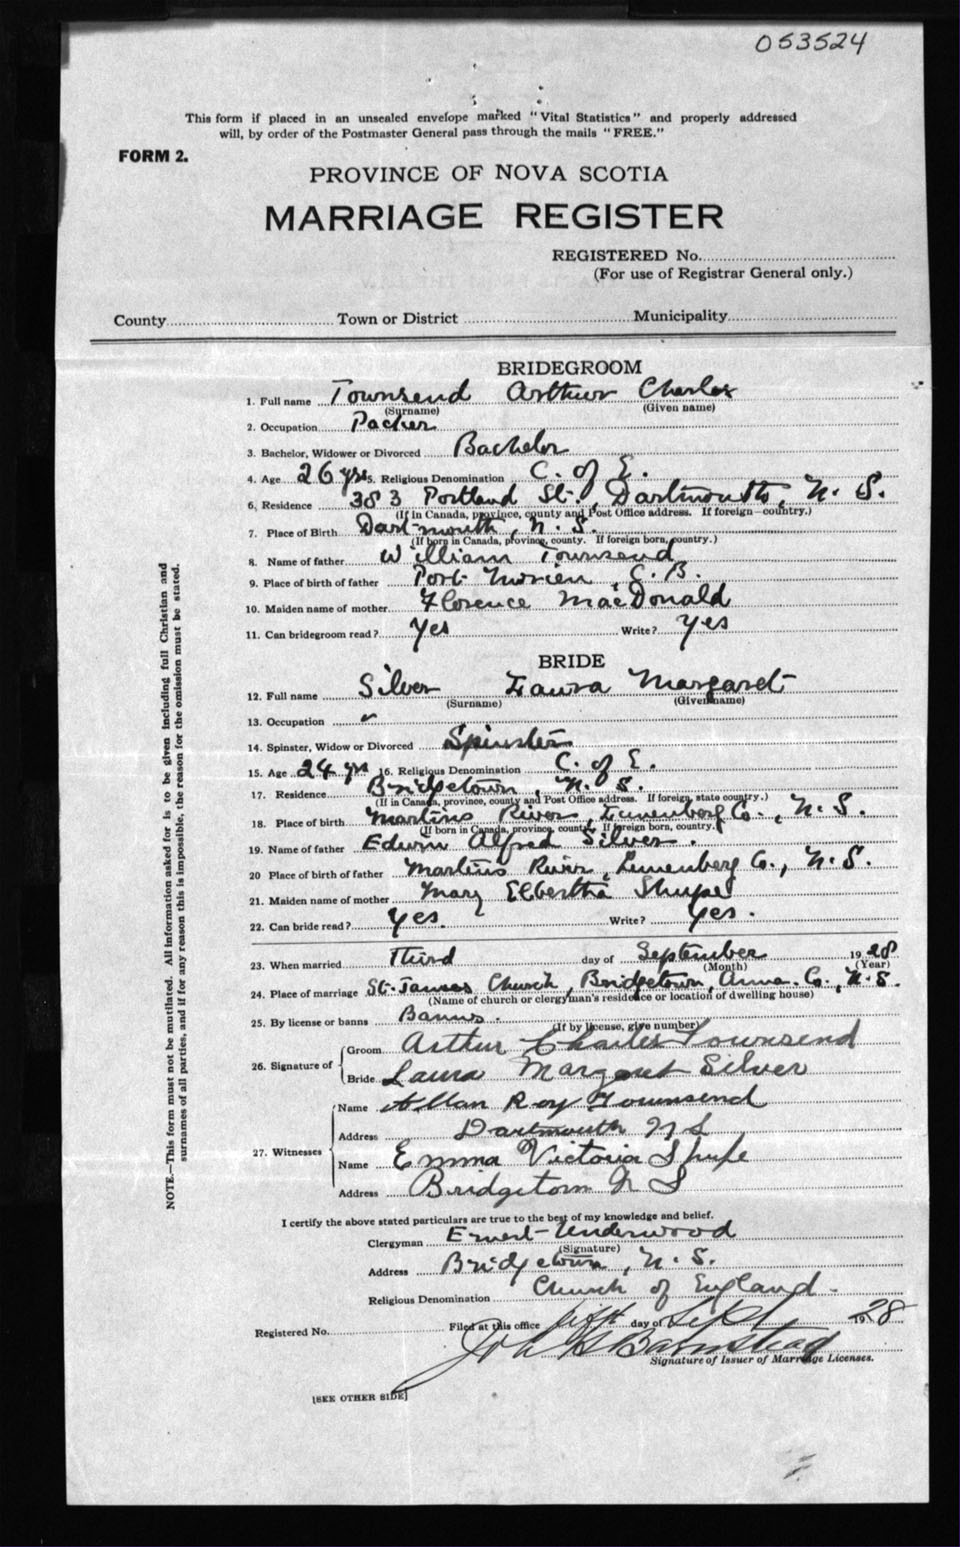 053524
This form if placed in an unsealed envelope marked "Vital Statistics" and properly addressed
will, by order of the Postmaster General pass through the mails "FREE."
FORM 2.
PROVINCE OF NOVA SCOTIA
MARRIAGE REGISTER
REGISTERED No.
(For use of Registrar General only.)
County Town or District Municipality
BRIDEGROOM
1. Full name Townsend Arthur Charles
(Surname) (Given name)
2. Occupation Packer
3. Bachelor, Widower or Divorced Bachelor
4. Age 26 yrs 5. Religious Denomination C. of E.
6. Residence 383 Portland St., Dartmouth, N. S.
(If in Canada, province, county and Post Office address. If foreign country.)
7. Place of Birth Dartmouth, N. S.
(If born in Canada, province, county. If foreign born, country.)
8. Name of father William Townsend
9. Place of birth of father Port Morien, C. B.
10. Maiden name of mother Florence MacDonald
11. Can bridegroom read? Yes Write? Yes
BRIDE
12. Full name Silver Laura Margaret
(Surname) (Given name)
13. Occupation
14. Spinster, Widow or Divorced Spinster
15. Age 24 yrs 16. Religious Denomination C. of E.
17. Residence Bridgetown, N. S.
(If in Canada, province, county and Post Office address. If foreign, state country.)
18. Place of birth Martins River, Lunenberg Co., N. S.
(If born in Canada, province, county. If foreign born, country.)
19. Name of father Edwin Alfred Silver.
20 Place of birth of father Martins River, Lunenberg Co., N. S.
21. Maiden name of mother Mary Elbertha Shupe
22. Can bride read? Yes. Write? Yes.
23. When married Third day of September 1928
(Month) (Year)
24. Place of marriage St. James Church, Bridgetown, Anna. Co., N. S.
(Name of church or clergyman's residence or location of dwelling house)
25. By license or banns Banns.
(If by license, give number)
26. Signature of Groom Arthur Charles Townsend
Bride Laura Margaret Silver
27. Witnesses Name Allan Roy Townsend
Address Dartmouth N S
Name Emma Victoria Shupe
Address Bridgetown N S
I certify the above stated particulars are true to the best of my knowledge and belief.
Clergyman Ernest Underwood
(Signature)
Address Bridgetown, N. S.
Religious Denomination Church of England.
Registered No. Filed at this office fifth day of Sept 1928
Barnstead
Signature of Issuer of Marriage Licenses.
[SEE OTHER SIDE]
NOTE.—This form must not be mutilated. All information asked for is to be given including full Christian and
surnames of all parties, and if for any reason this is impossible, the reason for the omission must be stated.